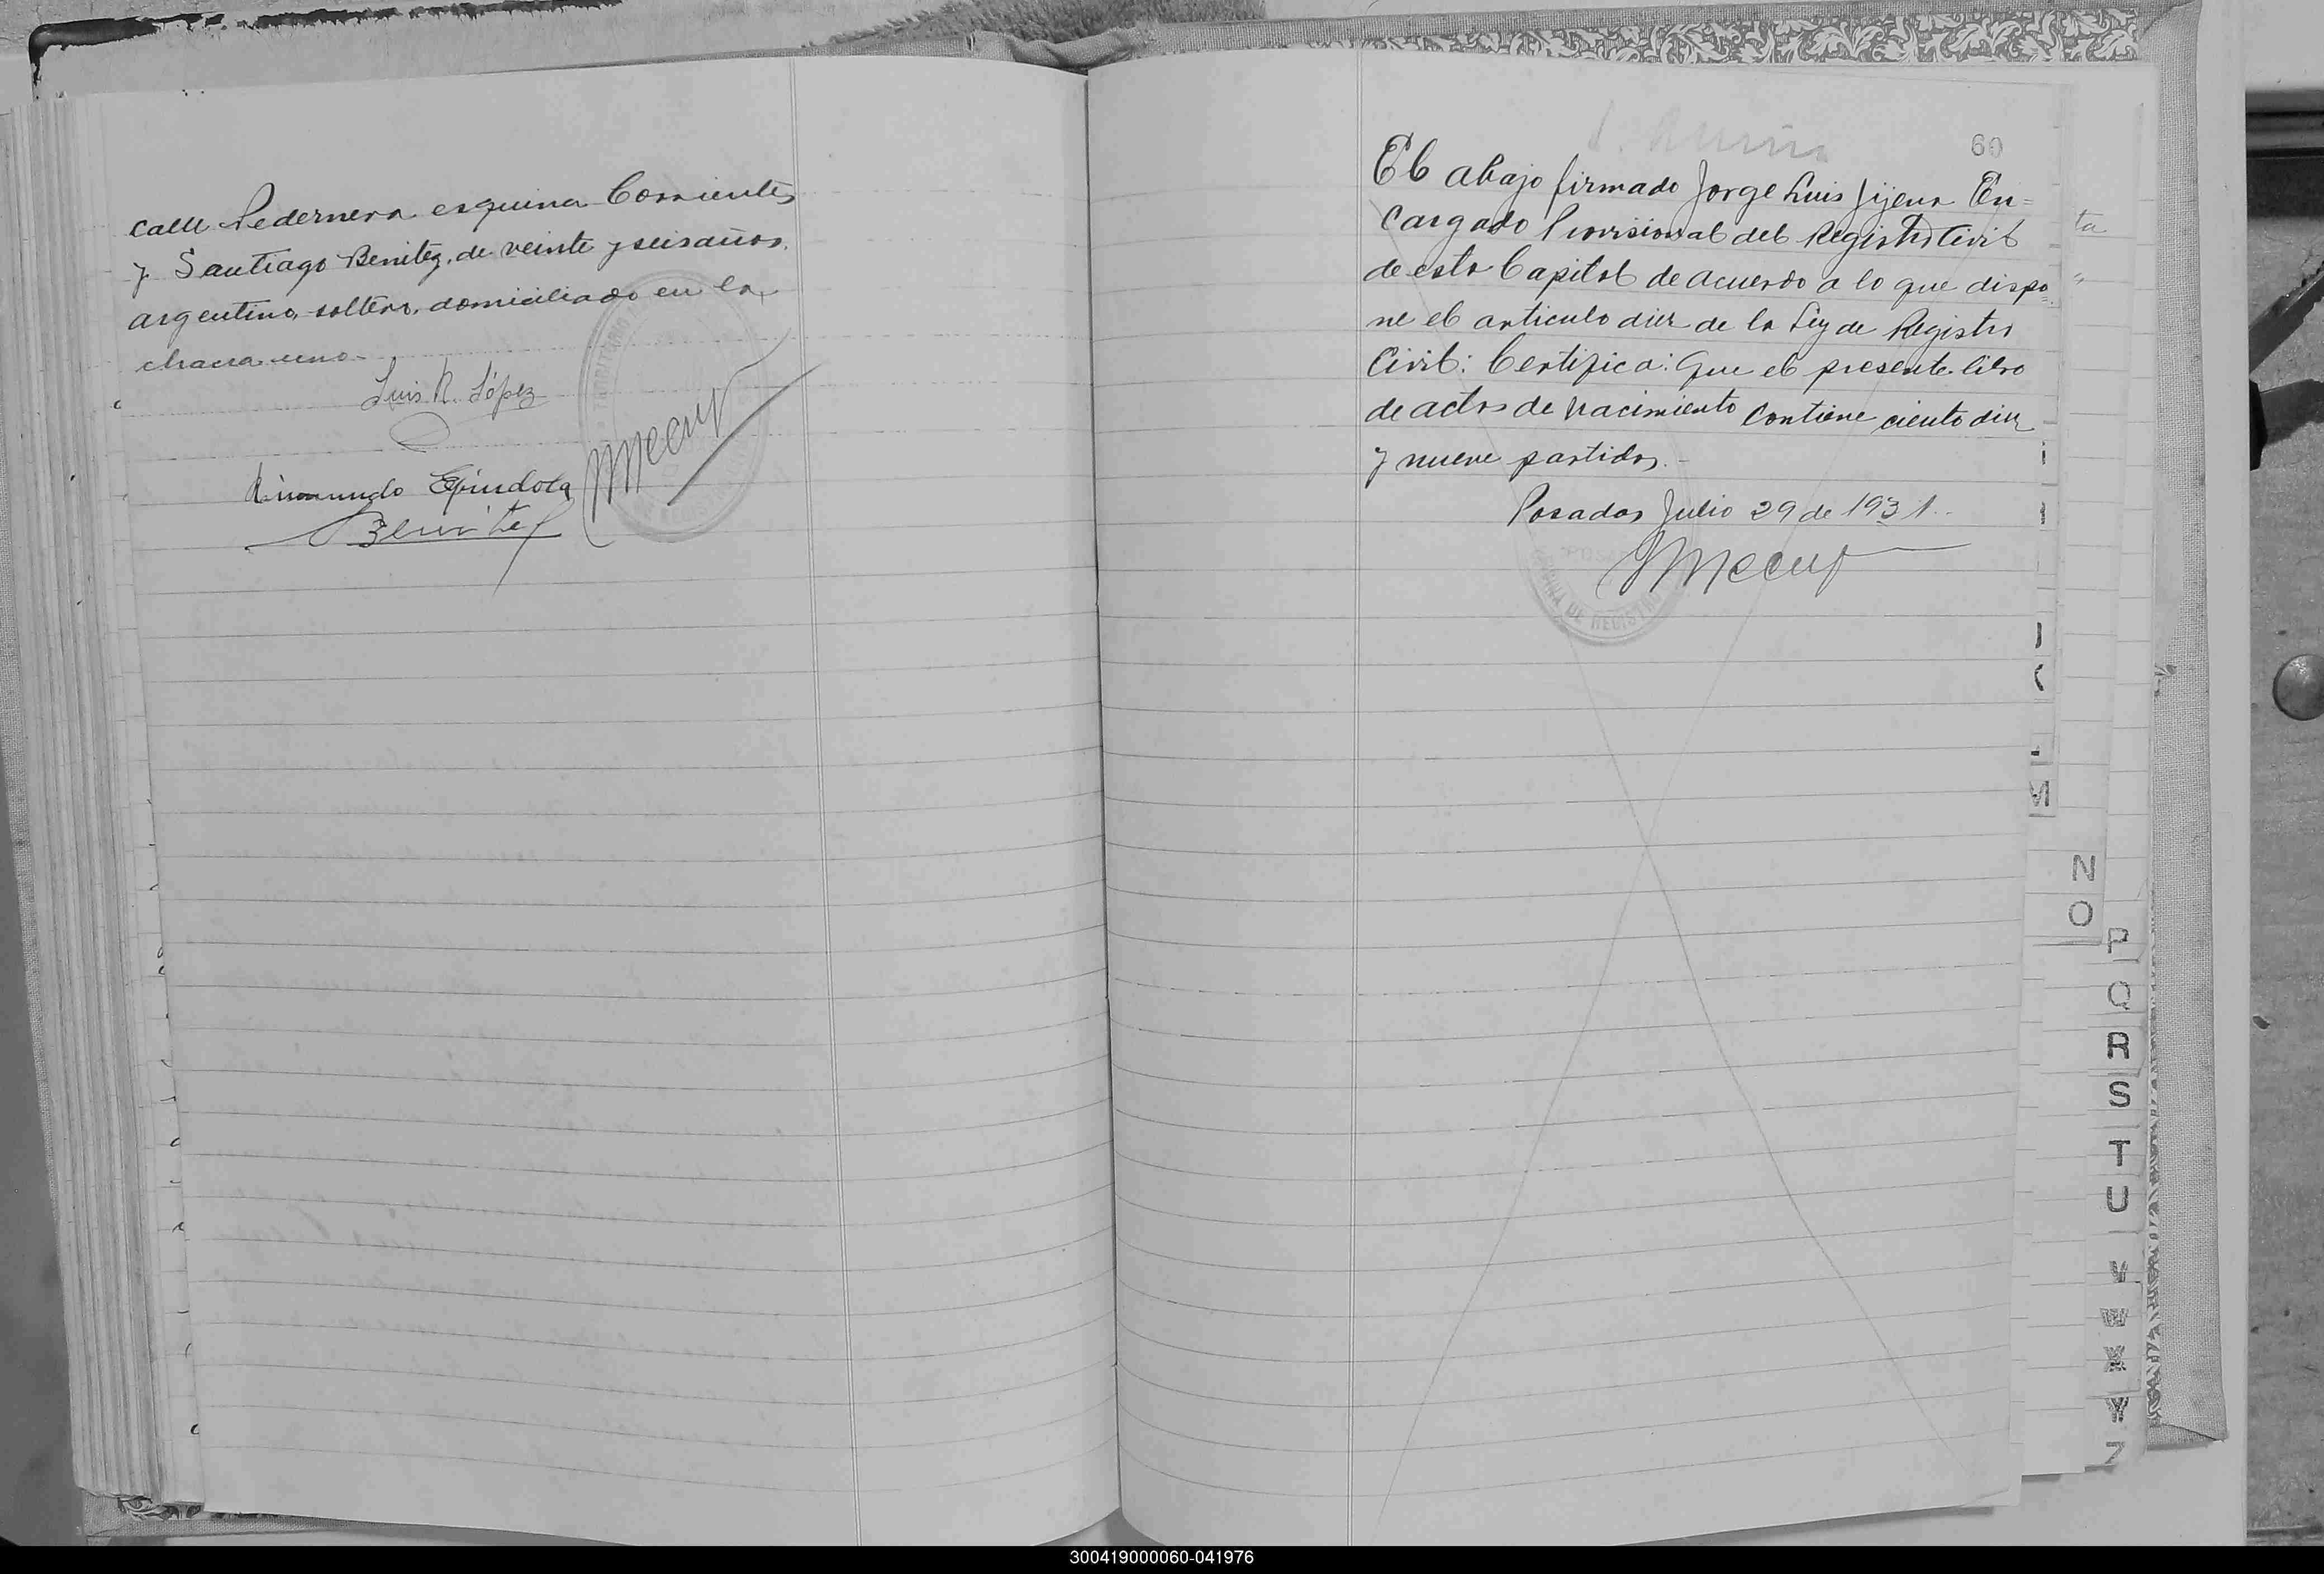 calle Pedernera esquina Corrientes
y Santiago Benitez, de veinte y seis años,
argentino, soltero, domiciliado en la
chacra uno.-
Luis R. López
Rimundo Espindola
Benitez
60
El abajo firmado Jorge Luis Jijena En=
cargado Provisional del Registro Civil
de esta Capital de acuerdo a lo que dispo=
ne el articulo diez de la Ley de Registro
Civil: Certifica: Que el presente libro
de actas de nacimiento contiene ciento diez
y nueve partidas.-
Posadas Julio 29 de 1931.-
OFICINA DE REGISTRO
ta
"
M
N
O
P
Q
R
S
T
U
V
W
X
Y
Z
300419000060-041976